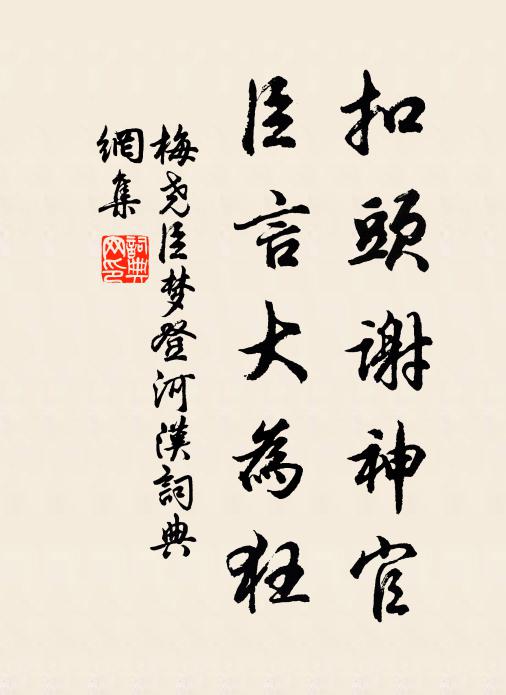 扣頭謝神官
臣言大為狂
梅尧臣梦登河漢詞典
網集
詞典
网印